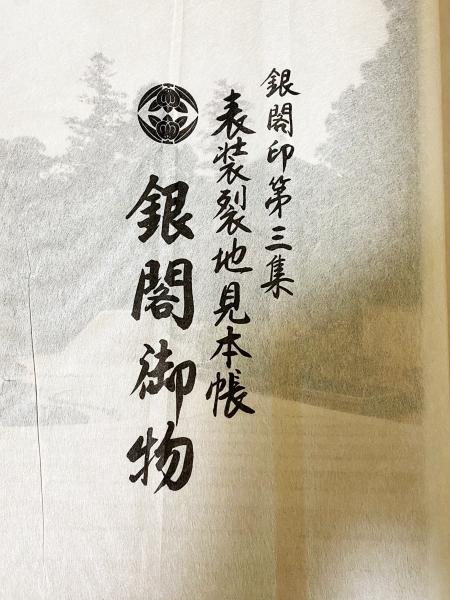 銀閣印第三集
表装裂地見本帳
銀閣御物